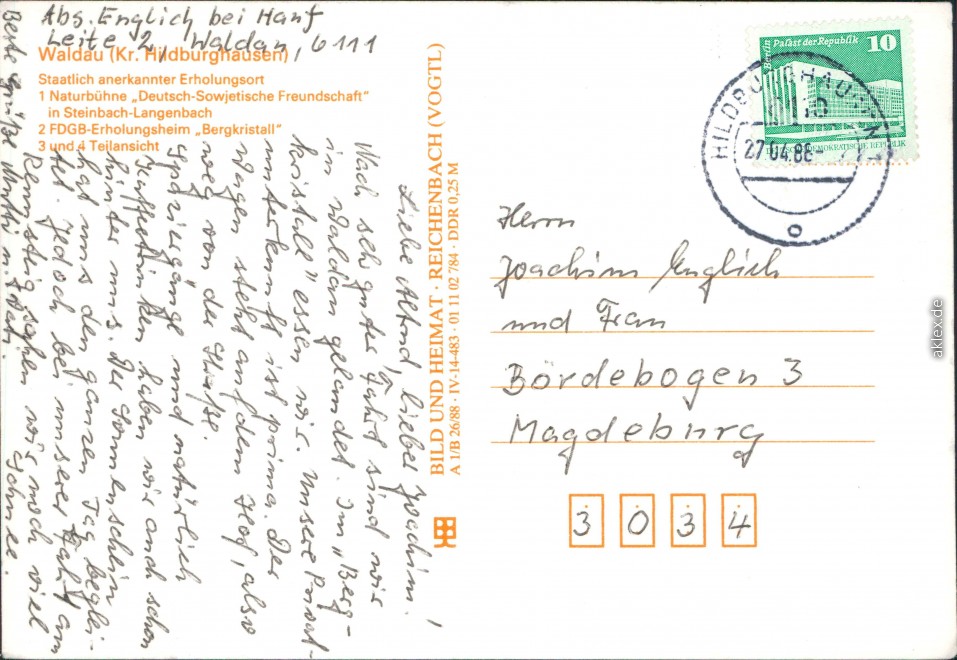 Abs. Englich bei Hanf
Leite 2, Waldau, 6111
Waldau (Kr. Hildburghausen)
Staatlich anerkannter Erholungsort
1 Naturbühne „Deutsch-Sowjetische Freundschaft"
in Steinbach-Langenbach
2 FDGB-Erholungsheim „Bergkristall"
3 und 4 Teilansicht
Liebe lieber Joachim!
Nach sehr guter Fahrt sind wir
in Waldau gelandet. Im „Berg-
kristall" essen wir. Unsere Privat-
unterkunft ist prima. Der
Wagen steht auf dem Hof, also
weg von der Straße.
Spaziergänge und natürlich
Kaffeetrinken haben wir auch schon
hinter uns. Der Sonnenschein
hat uns den ganzen Tag beglei-
tet. Jedoch bei unserer Fahrt am
Rennsteig sahen wir noch viel
Schnee.
Beste Grüße Mutti u. Vati.
BILD UND HEIMAT · REICHENBACH (VOGTL)
A 1/B 26/88 · IV-14-483 · 01 11 02 784 · DDR 0,25 M
Berlin Palast der Republik 10
DEUTSCHE DEMOKRATISCHE REPUBLIK
HILDBURGHAUSEN
27.04.88
Herrn
Joachim Englich
und Frau
Bördebogen 3
Magdeburg
3 0 3 4
aklex.de